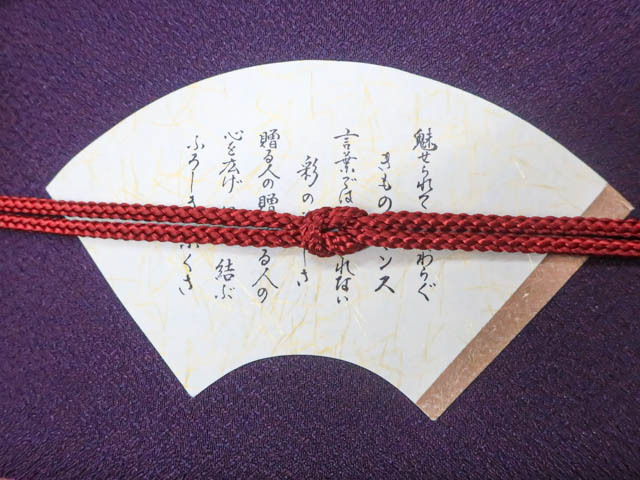 魅せられて わらぐ
きもの ンス
言葉では れない
彩の しさ
贈る人の贈 る人の
心を広げ 結ぶ
ふろしき ふくさ